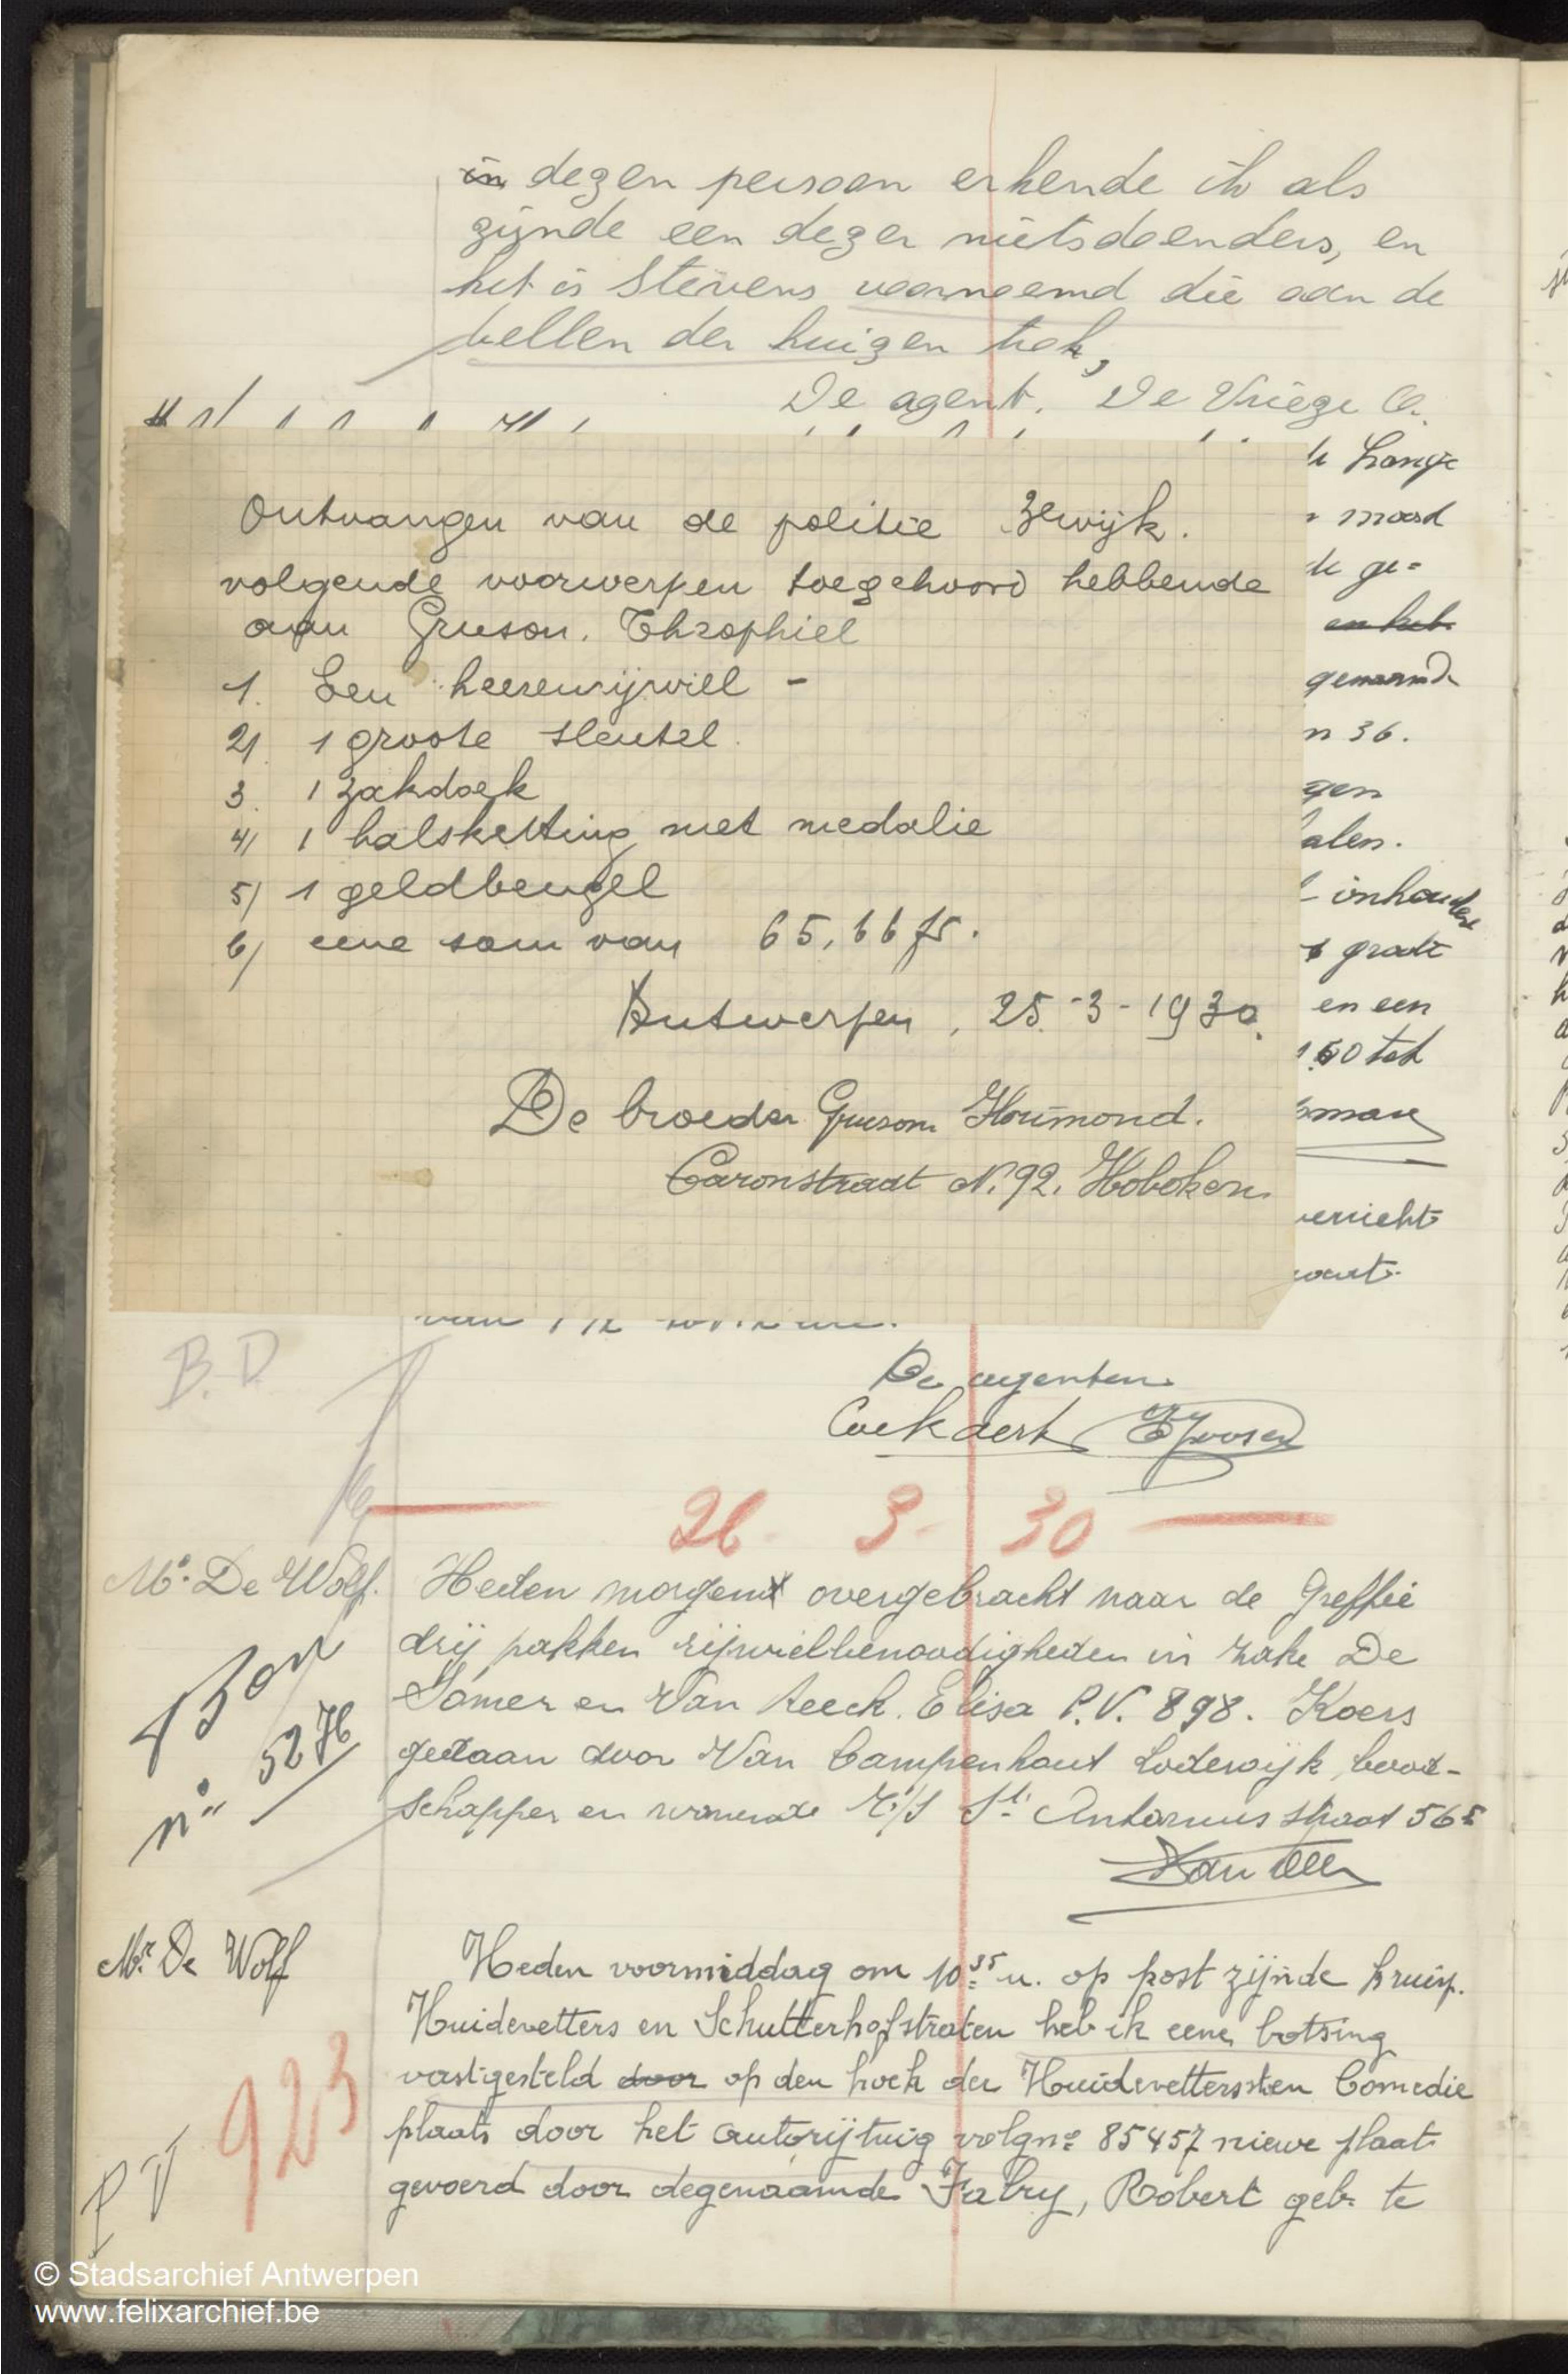 in dezen persoon erkende ik als
zijnde een dezer nietsdoenders, en
het is Stevens voornoemd die aan de
bellen der huizen trok,
De agent. De Vrieze C.
Ontvangen van de politie 3e wijk.
volgende voorwerpen toegehoord hebbende
aan Gruson. Theophiel
1. Een heerenrijwiel -
2) 1 groote sleutel.
3. 1 zakdoek
4) 1 halsketting met medalie
5) 1 geldbeugel
6) eene som van 65,66 fr.
Antwerpen, 25-3-1930.
De broeder Gruson
Caronstraat N. 92. Hoboken
moord
de ge=
en het
genaamd
n 36.
gen
alen.
inhoudend
grade
en een
1.50 tot
verricht
B. D.
De agenten
Coekaert EJoosen
26 - 3 - 30
Mr. De Wolf.
Heden morgend overgebracht naar de Greffie
drij pakken rijwielbenoodigheden in zake De
Somer en Van Reeck. Elisa P.V. 898. Koers
gedaan door Van Campenhout Lodewijk, bood-
schapper en wonende St Antonius straat 56
Bon
no 5276
Mr De Wolf
Heden voormiddag om 10:35 u. op post zijnde kruisp.
Huidevetters en Schuttershofstraten heb ik eene botsing
vastgesteld door op den hoek der Huidevettersstr en Comedie
plaats door het autorijtuig volgno 85457 nieuwe plaat
gevoerd door degenaamde Fabry, Robert geb. te
PV 923
© Stadsarchief Antwerpen
www.felixarchief.be